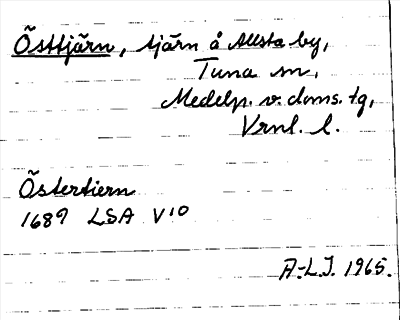 Östtjärn, tjärn å Allsta by,
Tuna sn,
Medelp. v. doms. tg,
Vrnl. l.
Östertiern
1689 LSA V10
A-L.J. 1965.